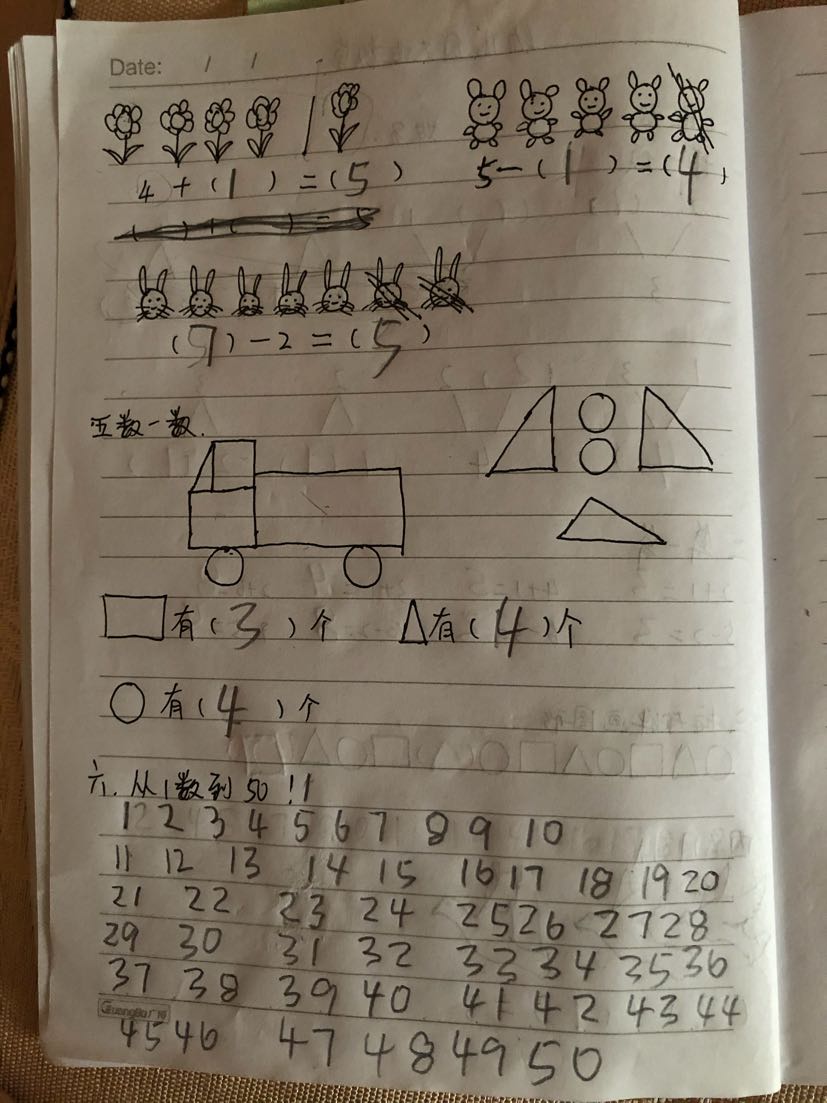 Date: / /
4+(1)=(5) 5-(1)=(4)
(7)-2=(5)
五数一数.
有(3)个 有(4)个
有(4)个
六.从1数到50!!
1 2 3 4 5 6 7 8 9 10
11 12 13 14 15 16 17 18 19 20
21 22 23 24 25 26 27 28
29 30 31 32 33 34 35 36
37 38 39 40 41 42 43 44
GuangBo 广博
45 46 47 48 49 50